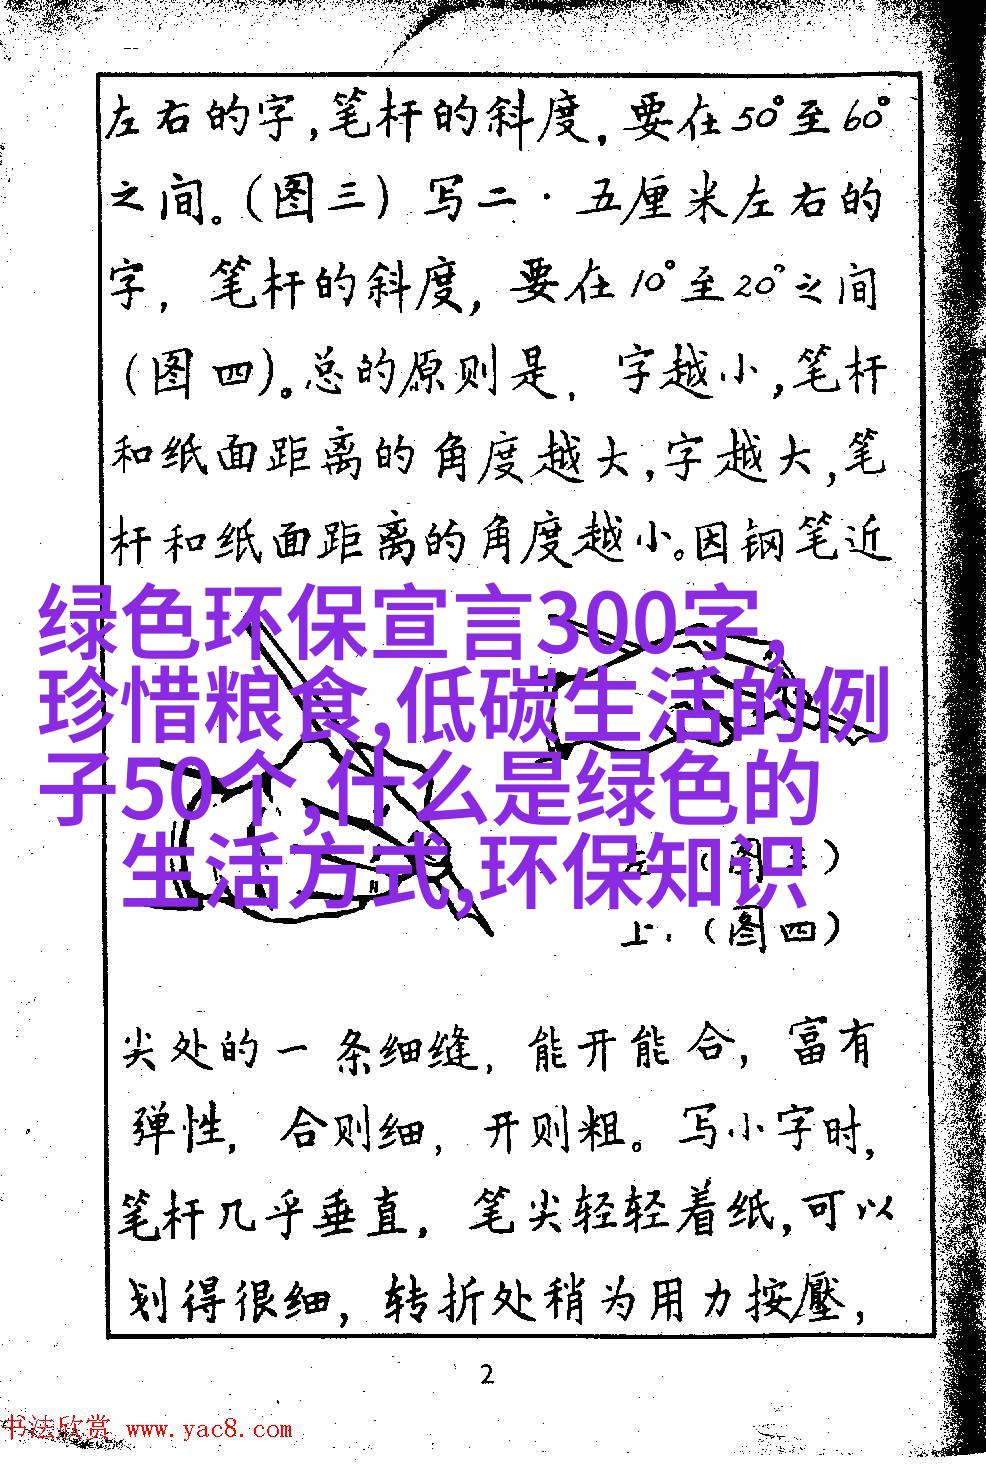 左右的字,笔杆的斜度,要在50°至60°
之间。(图三)写二·五厘米左右的
字,笔杆的斜度,要在10°至20°之间
(图四)。总的原则是,字越小,笔杆
和纸面距离的角度越大,字越大,笔
杆和纸面距离的角度越小。因钢笔近
绿色环保宣言300字,
珍惜粮食,低碳生活的例
子50个,什么是绿色的
生活方式,环保知识
(图三)
上.(图四)
尖处的一条细缝,能开能合,富有
弹性,合则细,开则粗。写小字时,
笔杆几乎垂直,笔尖轻轻着纸,可以
划得很细,转折处稍为用力按壓,
2
书法欣赏 www.yac8.com